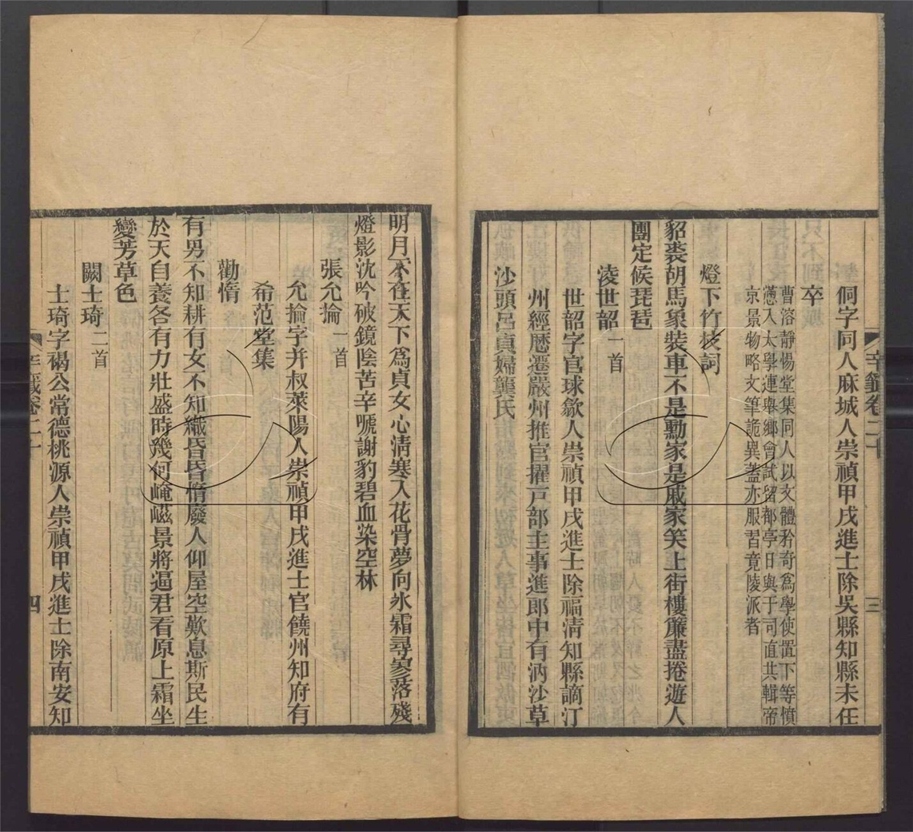 侗字同人麻城人崇禎甲戌進士除吳縣知縣未任
卒
曹溶靜惕堂集同人以文體矜奇爲學使置下等憤
懣入太學連舉鄉會試留都亭日與于司直共輯帝
京景物略文筆詭異蓋亦服習竟陵派者
燈下竹枝詞
貂裘胡馬象裝車不是勳家是戚家笑上街樓簾盡捲遊人
團定候琵琶
淩世韶一首
世韶字官球歙人崇禎甲戌進士除福清知縣謫汀
州經歷遷嚴州推官擢戶部主事進郎中有汭沙草
沙頭呂貞婦龔氏
辛籤卷二十
三
明月不在天下爲貞女心淸寒入花骨夢向氷霜尋寥落殘
燈影沈吟破鏡陰苦辛嗁謝豹碧血染空林
張允掄一首
允掄字并叔萊陽人崇禎甲戌進士官饒州知府有
希范堂集
勸惰
有男不知耕有女不知織昏昏惰廢人仰屋空歎息斯民生
於天自養各有力壯盛時幾何崦嵫景將逼君看原上霜坐
變芳草色
闞士琦二首
士琦字褐公常德桃源人崇禎甲戌進士除南安知
辛籤卷二十
四